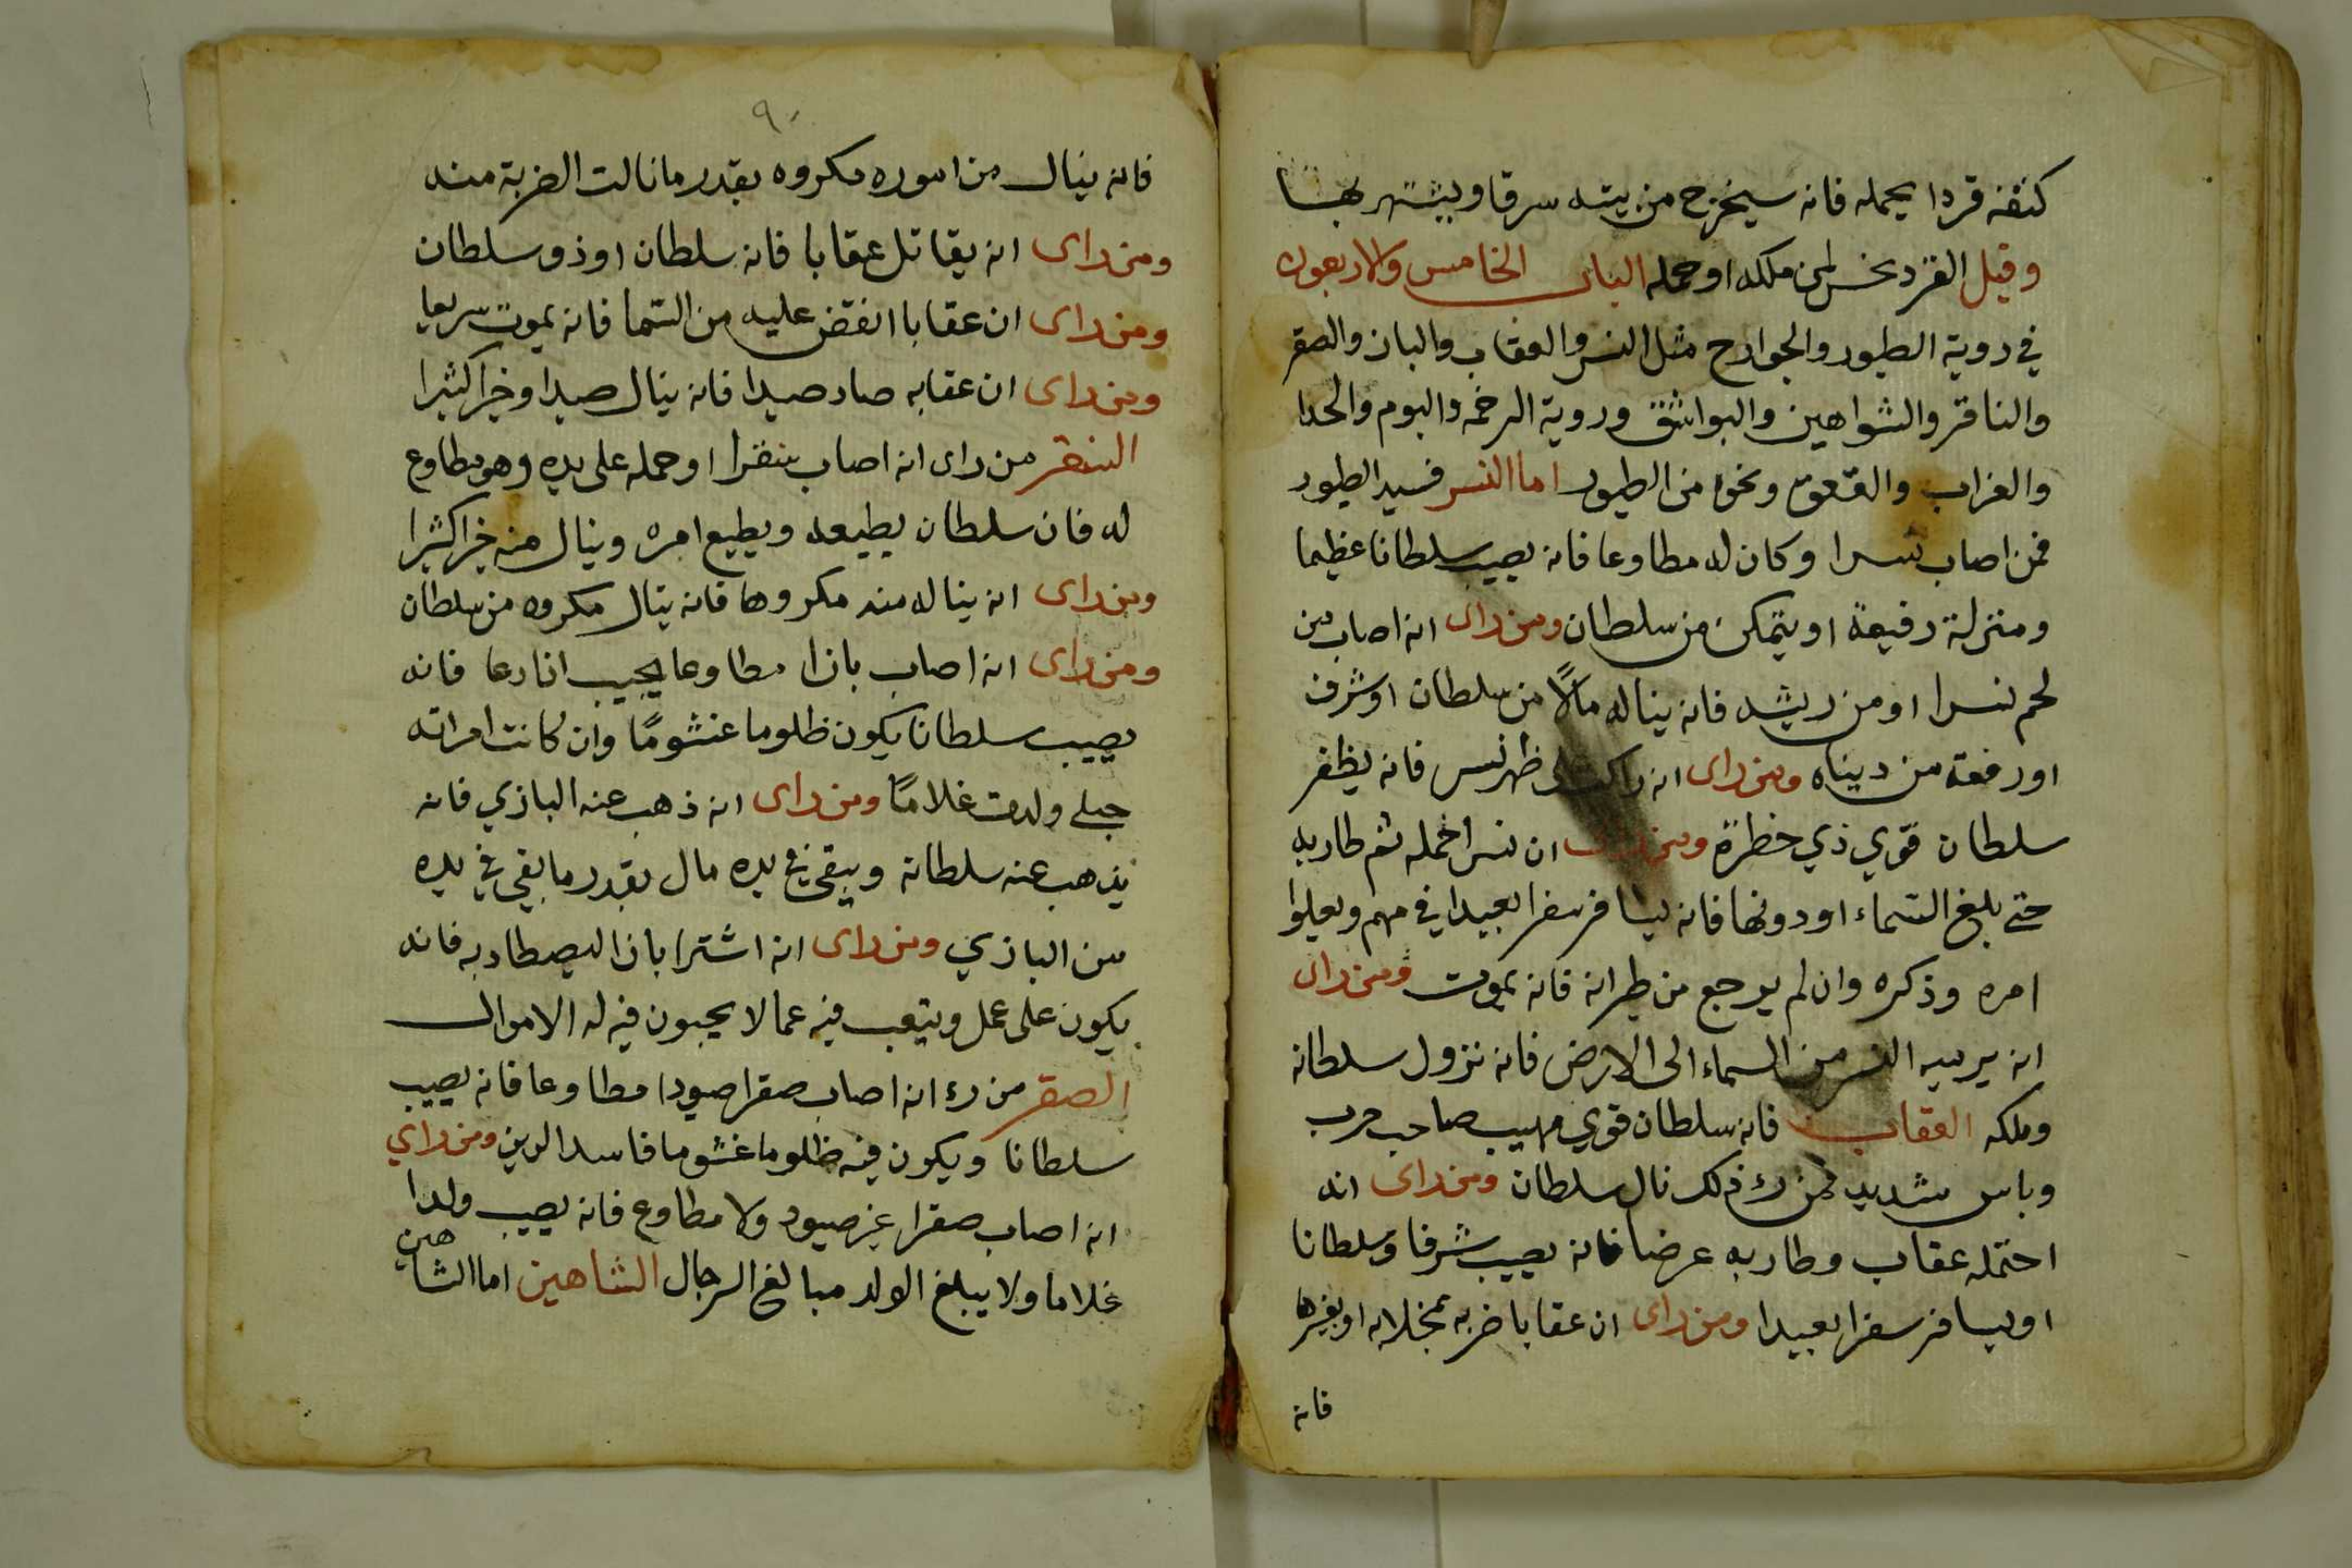 كتفه قردا يحمله فانه سيخرج من بيته سرقا ويشتهر بها
وقيل القرد نحس لمن ملكه او حمله الباب الخامس والاربعون
في روية الطيور والجوارح مثل النسر والعقاب والباز والصقر
والناقر والشواهين والبواشق وروية الرخمه والبوم والحدا
والغراب والقعق ونحوه من الطيور اما النسر فسيد الطيور
فمن اصاب نسرا وكان له مطاوعا فانه يصيب سلطانا عظيما
ومنزلة رفيعة او يتمكن من سلطان ومن راى انه اصاب من
لحم نسرا او من ريشه فانه يناله مالًا من سلطان او شرف
او رفعة من دنياه ومن راى انه راكب على ظهر نسر فانه يظفر
سلطان قوي ذي خطرة ومن راى ان نسرا حمله ثم طار به
حتى بلغ السماء او دونها فانه يسافر سفرا بعيدا في مهم ويعلوا
امره وذكره وان لم يرجع من طيرانه فانه يموت ومن راى
انه يرميه النسر من السماء الى الارض فانه نزول سلطانه
وملكه العقاب فانه سلطان قوي مهيب صاحب حرب
وباس شديد فمن رء ذلك نال سلطان ومن راى انه
احتمله عقاب وطار به عرضا فانه يصيب شرفا وسلطانا
او يسافر سفرا بعيدا ومن راى ان عقابا ضربه بمخلابه او بغيرها
فانه
٩٠
فانه ينال من اموره مكروه بقدر ما نالت الضربة منه
ومن راى انه يقاتل عقابا فانه سلطان او ذو سلطان
ومن راى ان عقابا انقض عليه من السما فانه يموت سريعا
ومن راى ان عقابه صاد صيدا فانه ينال صيدا وخيرا كثيرا
السنقر من راى انه اصاب سنقرا او حمله على يده وهو مطاوع
له فان سلطان يطيعه ويطيع امره وينال منه خيرا كثيرا
ومن راى انه يناله منه مكروها فانه ينال مكروه من سلطان
ومن راى انه اصاب بازا مطاوعا يجيب اذا دعا فانه
يصيب سلطانا يكون ظلوما غشومًا وان كانت امراته
حبلى ولدت غلامًا ومن راى انه ذهب عنه البازي فانه
يذهب عنه سلطانه ويبقى في يده مال بقدر ما بقى في يده
من البازي ومن راى انه اشترا بازا ليصطاد به فانه
يكون على عمل ويتعب فيه عمالا يجبون فيه له الاموال
الصقر من رء انه اصاب صقرا صيودا مطاوعا فانه يصيب
سلطانا ويكون فيه ظلوما غشوما فاسد الدين ومن راي
انه اصاب صقرا غير صيود ولا مطاوع فانه يصيب ولدا
غلاما ولا يبلغ الولد مبالغ الرجال الشاهين اما الشاهين